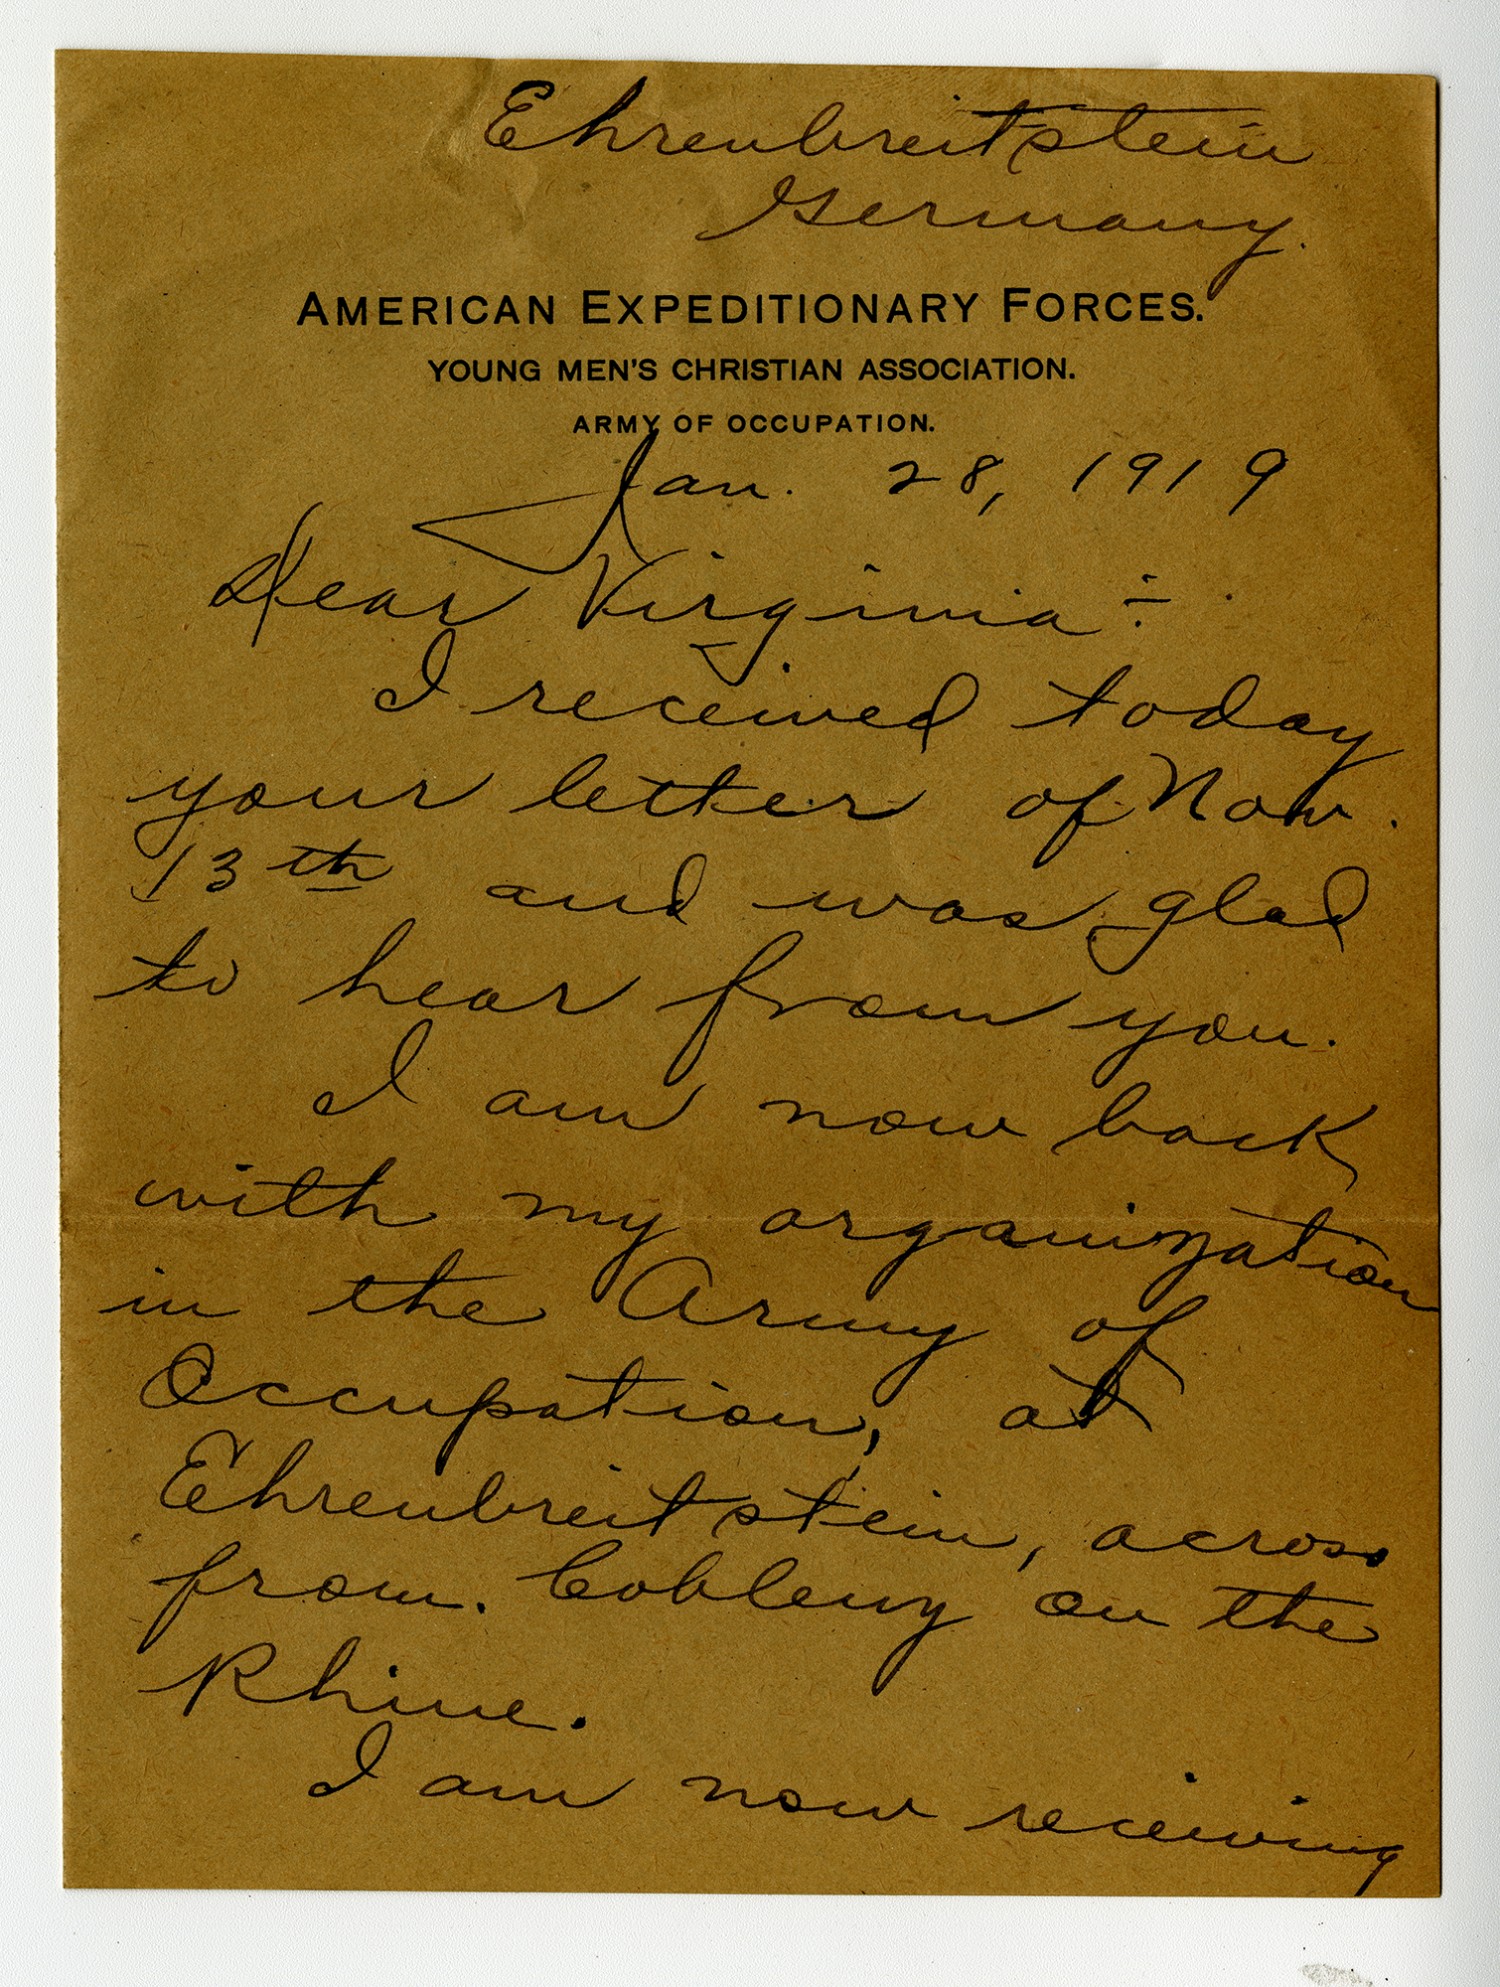 Ehrenbreitstein
Germany.
AMERICAN EXPEDITIONARY FORCES.
YOUNG MEN'S CHRISTIAN ASSOCIATION.
ARMY OF OCCUPATION.
Jan. 28, 1919
Dear Virginia:-
I received today
your letter of Nov.
13th and was glad
to hear from you.
I am now back
with my organization
in the Army of
Occupation, at
Ehrenbreitstein, across
from Coblenz on the
Rhine.
I am now receiving